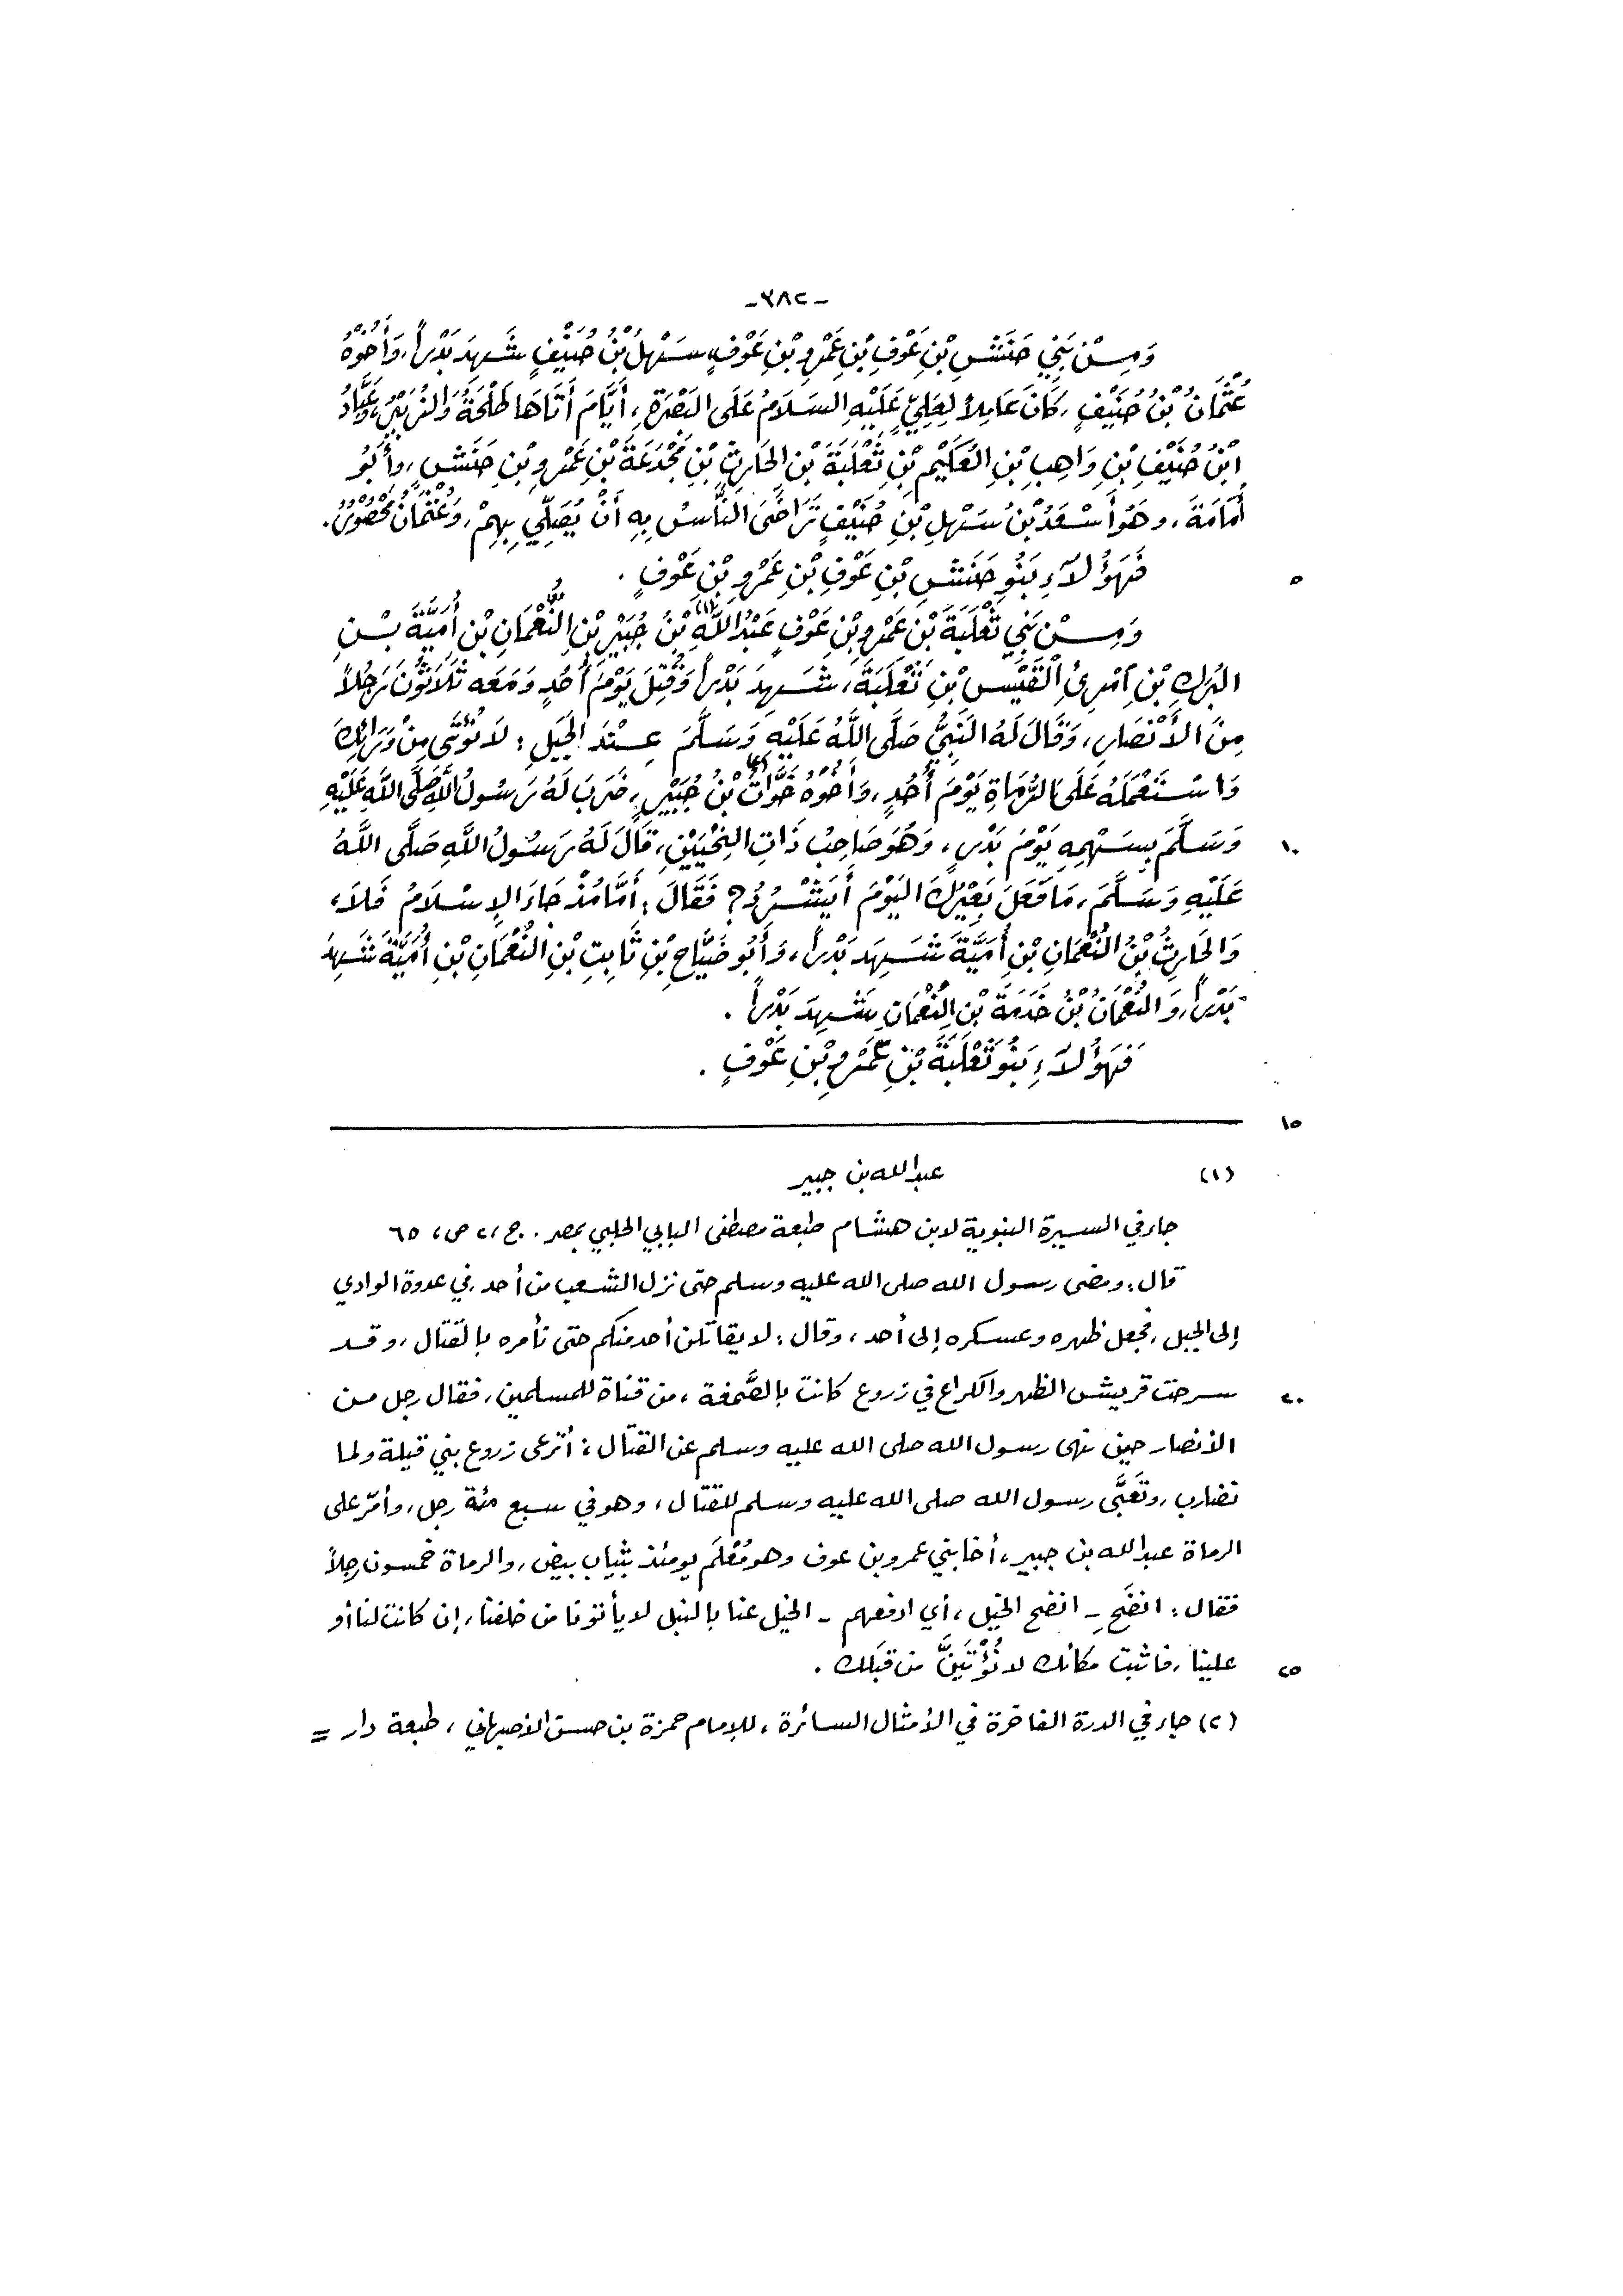 -٣٨٢-
وَمِنْ بَنِي حَنَشِ بْنِ عَوْفِ بْنِ عَمْرِو بْنِ عَوْفٍ سَهْلُ بْنُ حُنَيْفٍ شَهِدَ بَدْراً، وَأَخُوهُ
عُثْمَانُ بْنُ حُنَيْفٍ، كَانَ عَامِلاً لِعَلِيٍّ عَلَيْهِ السَلَامُ عَلَى البَصْرَةِ، أَيَّامَ أَتَاهَا طَلْحَةُ وَالزُبَيْرُ، وَعَبَّادُ
ابْنُ حُنَيْفِ بْنِ وَاهِبِ بْنِ العُكَيْمِ بْنِ ثَعْلَبَةَ بْنِ الحَارِثِ بْنِ مَجْدَعَةَ بْنِ عَمْرِو بْنِ حَنَشٍ، وأَبُو
أُمَامَةَ، وهُوَ أَسْعَدُ بْنُ سَهْلِ بْنِ حُنَيْفٍ تَرَاضَى النَّاسُ بِهِ أَنْ يُصَلِّي بِهِمْ، وَعُثْمَانُ مَحْصُورٌ.
فَهَؤُلَاءِ بَنُو حَنَشِ بْنِ عَوْفِ بْنِ عَمْرِو بْنِ عَوْفٍ .
٥
وَمِنْ بَنِي ثَعْلَبَةَ بْنِ عَمْرِو بْنِ عَوْفٍ عَبْدُ اللَّهِ(١) بْنُ جُبَيْرِ بْنِ النُّعْمَانِ بْنِ أُمَيَّةَ بْنِ
البُرَكِ بْنِ امْرِئِ القَيْسِ بْنِ ثَعْلَبَةَ، شَهِدَ بَدْراً وَقُتِلَ يَوْمَ أُحُدٍ وَمَعَه ثَلَاثُونَ رَجُلاً
مِنَ الأَنْصَارِ، وَقَالَ لَهُ النَبِيُّ صَلَّى اللَّهُ عَلَيْهِ وَسَلَّمَ عِنْدَ الجَبَلِ: لَا نُؤْتَى مِنْ وَرَائِكَ
وَاسْتَعْمَلَهُ عَلَى الرُّمَاةِ يَوْمَ أُحُدٍ، وَأَخُوهُ خَوَّاتُ(٢) بْنُ جُبَيْرٍ، ضَرَبَ لَهُ رَسُولُ اللَّهِ صَلَّى اللَّهِ عَلَيْهِ
وَسَلَّمَ بِسَهْمِهِ يَوْمَ بَدْرٍ، وَهُوَ صَاحِبُ ذَاتِ النِحْيَيْنِ، قَالَ لَهُ رَسُولُ اللَّهِ صَلَّى اللَّهُ
١٠
عَلَيْهِ وَسَلَّمَ، مَا فَعَلَ بَعِيْرُكَ اليَوْمَ أَيَشْرُدُ؟ فَقَالَ: أَمَّا مُنْذُ جَاءَ الإِسْلَامُ فَلَا،
وَالحَارِثُ بْنُ النُعْمَانِ بْنِ أُمَيَّةَ شَهِدَ بَدْراً، وَأَبُو ضَيَّاحِ بْنِ ثَابِتِ بْنِ النُعْمَانِ بْنِ أُمَيَّةَ شَهِدَ
بَدْراً، وَالنُعْمَانُ بْنُ خَدَمَةَ بْنِ النُعْمَانِ شَهِدَ بَدْراً .
فَهَؤُلَاءِ بَنُو ثَعْلَبَةَ بْنِ عَمْرِو بْنِ عَوْفٍ .
١٥
(١) عبد الله بن جبير
جاء في السيرة النبوية لابن هشام طبعة مصطفى البابي الحلبي بمصر . ج، ٢ ص، ٦٥
قال: ومضى رسول الله صلى الله عليه وسلم حتى نزل الشعب من أحد، في عدوة الوادي
إلى الجبل، فجعل ظهره وعسكره إلى أحد، وقال: لا يقاتلن أحد منكم حتى نأمره بالقتال، وقد
سرحت قريش الظهر والكراع في زروع كانت بالصَّمغة، من قناة للمسلمين، فقال رجل من
٢٠
الأنصار حين نهى رسول الله صلى الله عليه وسلم عن القتال: أترعى زروع بني قيلة ولما
نضارب، وتَعَبَّى رسول الله صلى الله عليه وسلم للقتال، وهو في سبع مئة رجل، وأمّر على
الرماة عبد الله بن جبير، أخا بني عمرو بن عوف وهو مُعْلَم يومئذ بثياب بيض، والرماة خمسون رجلاً
فقال: انضَحِ - انضح الخيل، أي ادفعهم - الخيل عنا بالنبل لا يأتونا من خلفنا، إن كانت لنا أو
علينا، فاثبت مكانك لا نُؤْتَيَنَّ من قبَلك .
٢٥
(٢) جاء في الدرة الفاخرة في الأمثال السائرة، للإمام حمزة بن حسن الأصبهاني، طبعة دار =